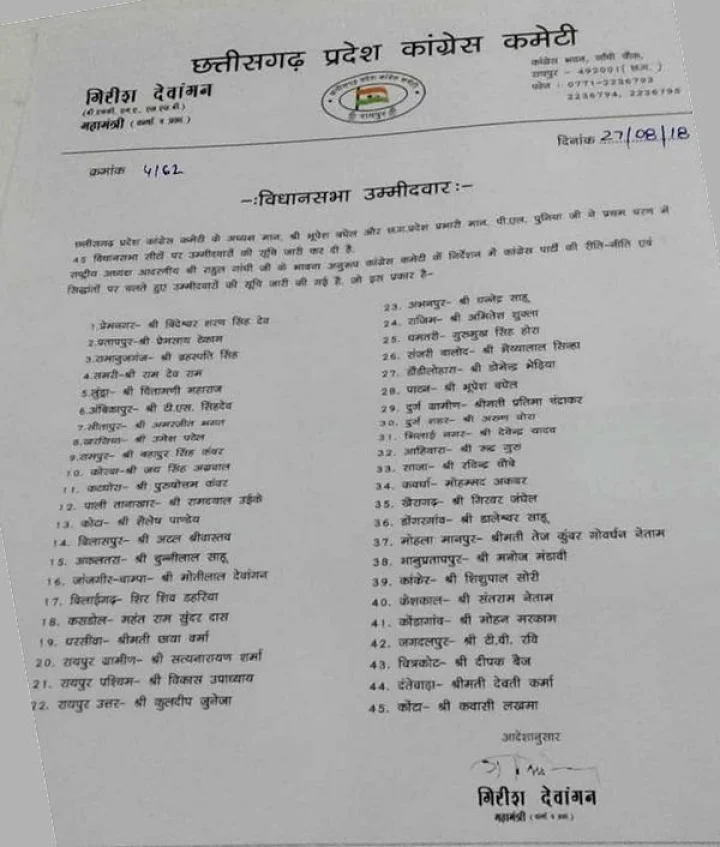 छत्तीसगढ़ प्रदेश कांग्रेस कमेटी
गिरीश देवांगन
महामंत्री
कांग्रेस भवन, गाँधी चौक,
रायपुर - 492001 (छ.ग.)
फोन : 0771-2236793
2236794, 2236795
रायपुर
क्रमांक 4/62
दिनांक 27/08/18
-:विधानसभा उम्मीदवार:-
छत्तीसगढ़ प्रदेश कांग्रेस कमेटी के अध्यक्ष मान. श्री भूपेश बघेल और छ.ग.प्रदेश प्रभारी मान. पी.एल. पुनिया जी ने प्रथम चरण में
45 विधानसभा सीटों पर उम्मीदवारों की सूचि जारी कर दी है.
राष्ट्रीय अध्यक्ष आदरणीय श्री राहुल गांधी जी के भावना अनुरूप कांग्रेस कमेटी के निर्देशन में कांग्रेस पार्टी की रीति-नीति एवं
सिद्धांतों पर चलते हुए उम्मीदवारों की सूचि जारी की गई है, जो इस प्रकार है-
1.प्रेमनगर- श्री विदेश्वर शरण सिंह देव
2.प्रतापपुर-श्री प्रेमसाय टेकाम
3.रामानुजगंज- श्री ब्रहस्पति सिंह
4.समरी-श्री राम देव राम
5.लुंड्रा- श्री चिंतामणी महाराज
6.अंबिकापुर- श्री टी.एस. सिंहदेव
7.सीतापुर- श्री अमरजीत भगत
8.खरसिया- श्री उमेश पटेल
9.रामपुर- श्री बहादुर सिंह कंवर
10. कोरबा-श्री जय सिंह अग्रवाल
11. कटघोरा- श्री पुरुषोत्तम कंवर
12. पाली तानाखार- श्री रामदयाल उईके
13. कोटा- श्री शैलेष पाण्डेय
14. बिलासपुर- श्री अटल श्रीवास्तव
15. अकलतरा- श्री चुन्नीलाल साहू
16. जांजगीर-चाम्पा- श्री मोतीलाल देवांगन
17. बिलाईगढ़- शिर शिव डहरिया
18. कसडोल- महंत राम सुंदर दास
19. धरसींवा- श्रीमती छाया वर्मा
20. रायपुर ग्रामीण- श्री सत्यनारायण शर्मा
21. रायपुर पश्चिम- श्री विकास उपाध्याय
22. रायपुर उत्तर- श्री कुलदीप जुनेजा
23. अभनपुर- श्री धनेन्द्र साहू
24. राजिम- श्री अमितेश शुक्ला
25. धमतरी- गुरुमुख सिंह होरा
26. संजरी बालोद- श्री भैय्यालाल सिन्हा
27. डौंडीलोहारा- श्री डोमेन्द्र भेड़िया
28. पाटन- श्री भूपेश बघेल
29. दुर्ग ग्रामीण- श्रीमती प्रतिमा चंद्राकर
30. दुर्ग शहर- श्री अरुण वोरा
31. भिलाई नगर- श्री देवेन्द्र यादव
32. आहिवारा- श्री रूद्र गुरु
33. साजा- श्री रविन्द्र चौबे
34. कवर्धा- मोहम्मद अकबर
35. खैरागढ़- श्री गिरवर जंघेल
36. डोंगरगांव- श्री डालेश्वर साहू
37. मोहला मानपुर- श्रीमती तेज कुंवर गोवर्धन नेताम
38. भानुप्रतापपुर- श्री मनोज मंडावी
39. कांकेर- श्री शिशुपाल सोरी
40. केशकाल- श्री संतराम नेताम
41. कोंडागांव- श्री मोहन मरकाम
42. जगदलपुर- श्री टी.वी. रवि
43. चित्रकोट- श्री दीपक बैज
44. दंतेवाड़ा- श्रीमती देवती कर्मा
45. कोंटा- श्री कवासी लखमा
आदेशानुसार
गिरीश देवांगन
महामंत्री